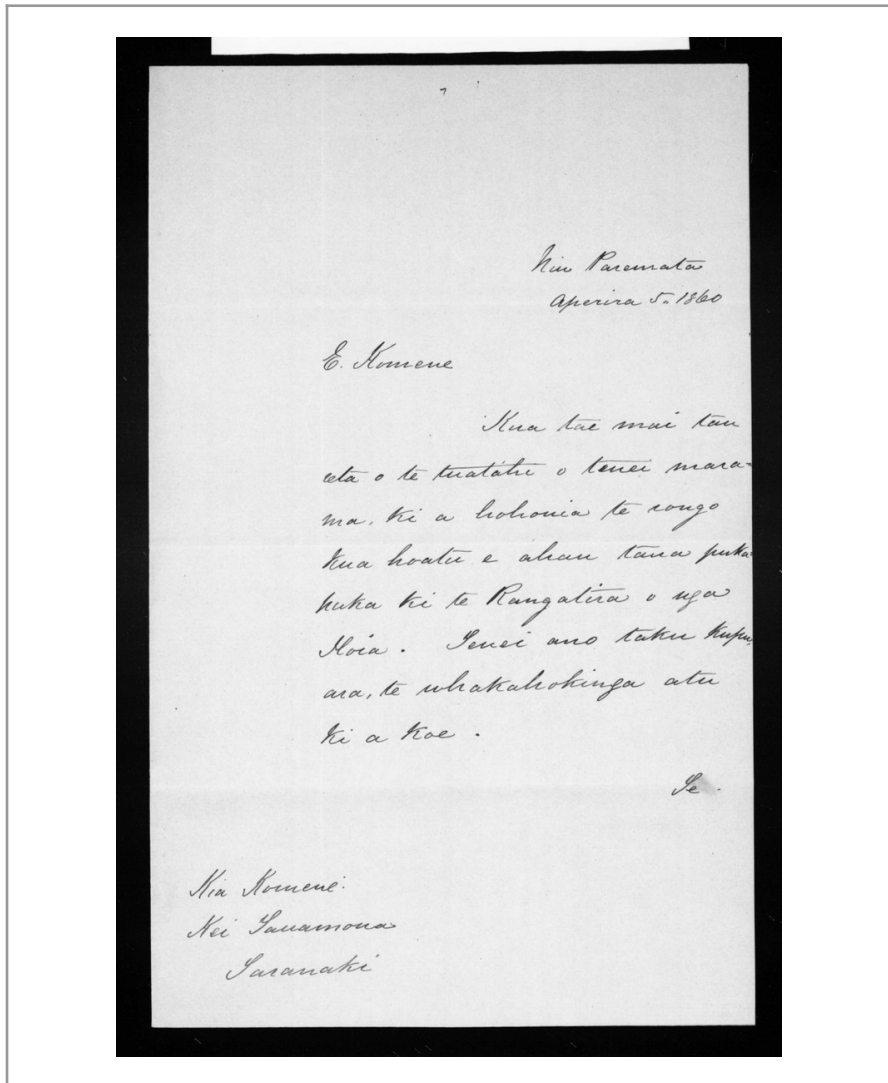 Niu Paremata
Aperira 5. 1860
E. Komene
Kua tae mai tau
reta o te tuatahi o tenei mara-
ma. Ki a hohonia te rongo
Kua hoatu e ahau taua puka-
puka ki te Rangatira o nga
Hoia. Tenei ano taku Kupu,
ara, te whakahokinga atu
Ki a Koe.
Te
Kia Komene.
Kei Tauamoua
Taranaki